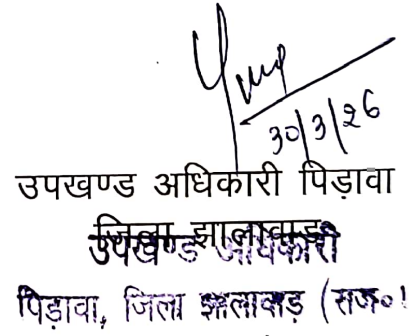 30/3/26
उपखण्ड अधिकारी पिड़ावा
जिला झालावाड़
उपखण्ड अधिकारी
पिड़ावा, जिला झालावाड़ (राज०)